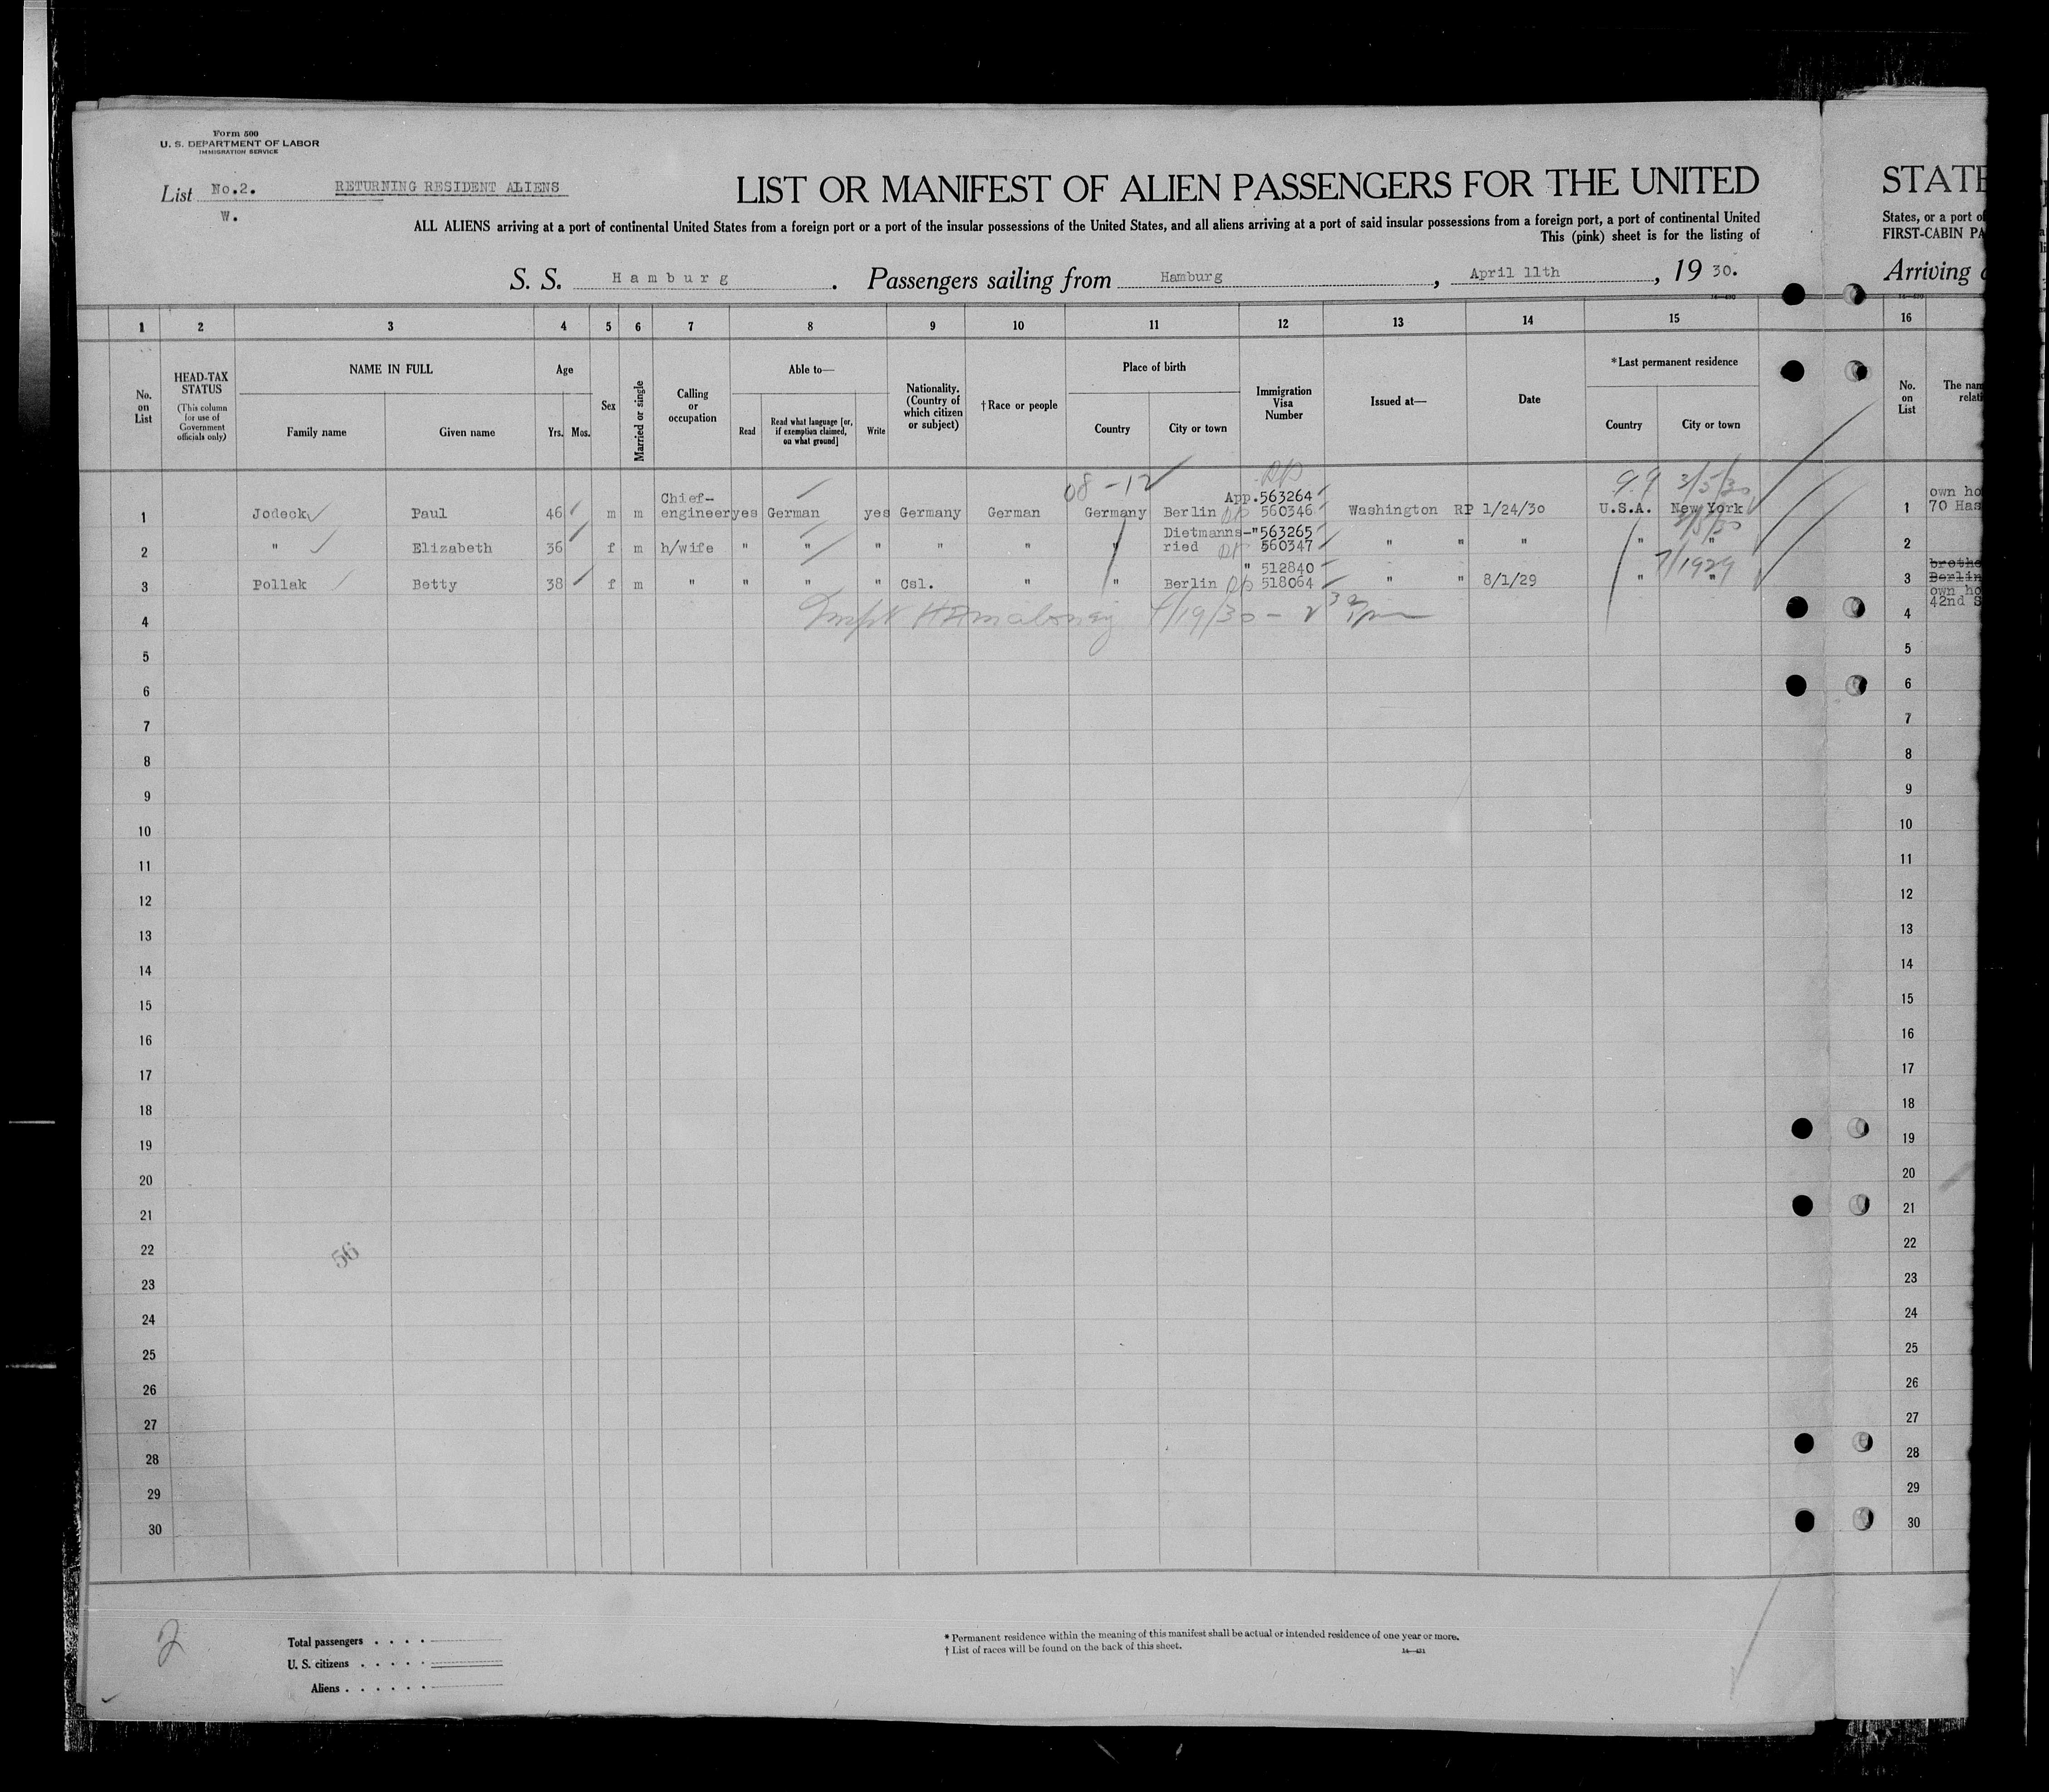 Form 500
U. S. DEPARTMENT OF LABOR
IMMIGRATION SERVICE
List No.2. RETURNING RESIDENT ALIENS
W.
LIST OR MANIFEST OF ALIEN PASSENGERS FOR THE UNITED
ALL ALIENS arriving at a port of continental United States from a foreign port or a port of the insular possessions of the United States, and all aliens arriving at a port of said insular possessions from a foreign port, a port of continental United
This (pink) sheet is for the listing of
S. S. Hamburg. Passengers sailing from Hamburg, April 11th, 19 30.
STATE
States, or a port of
FIRST-CABIN PA
Arriving
1 2 3 4 5 6 7 8 9 10 11 12 13 14 15 16
No. on List
HEAD-TAX STATUS
(This column for use of Government officials only)
NAME IN FULL
Family name Given name
Age
Yrs. Mos.
Sex
Married or single
Calling or occupation
Able to—
Read
Read what language [or, if exemption claimed, on what ground]
Write
Nationality. (Country of which citizen or subject)
† Race or people
Place of birth
Country City or town
Immigration Visa Number
Issued at—
Date
*Last permanent residence
Country City or town
No. on List
The nam
relati
08-12 9.9 3/5/30
1 Jodeck Paul 46 m m Chief-engineer yes German yes Germany German Germany Berlin App.563264 560346 Washington RP 1/24/30 U.S.A. New York 1 own ho
70 Has
3/5/30
2 " Elizabeth 36 f m h/wife " " " " " " Dietmanns-ried "563265 560347 " " " " " 2
7/1929
3 Pollak Betty 38 f m " " " " Csl. " " Berlin " 512840 518064 " " 8/1/29 " " 3 brothe
Berlin
own ho
42nd S
4 4/19/30 4
5 5
6 6
7 7
8 8
9 9
10 10
11 11
12 12
13 13
14 14
15 15
16 16
17 17
18 18
19 19
20 20
21 21
22 22
56
23 23
24 24
25 25
26 26
27 27
28 28
29 29
30 30
2
Total passengers . . . .
U. S. citizens . . . . .
Aliens . . . . . .
* Permanent residence within the meaning of this manifest shall be actual or intended residence of one year or more.
† List of races will be found on the back of this sheet.
14—421